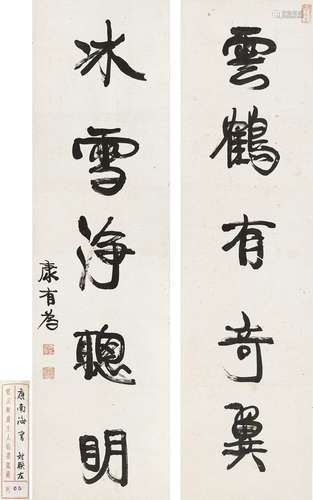 雲鶴有奇翼
冰雪淨聰明
康有為
康南海書對聯左